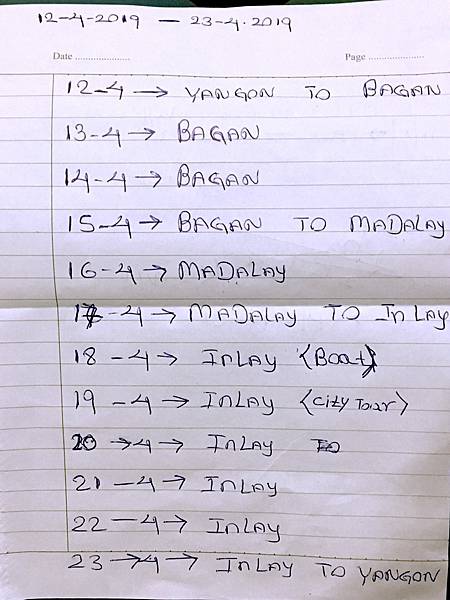 12-4-2019 — 23-4-2019
Date .................... Page ....................
12-4 → YANGON TO BAGAN
13-4 → BAGAN
14-4 → BAGAN
15-4 → BAGAN TO MADALAY
16-4 → MADALAY
17-4 → MADALAY TO INLAY
18-4 → INLAY (Boat)
19-4 → INLAY (City Tour)
20→4 → INLAY
21-4 → INLAY
22-4 → INLAY
23→4 → INLAY TO YANGON